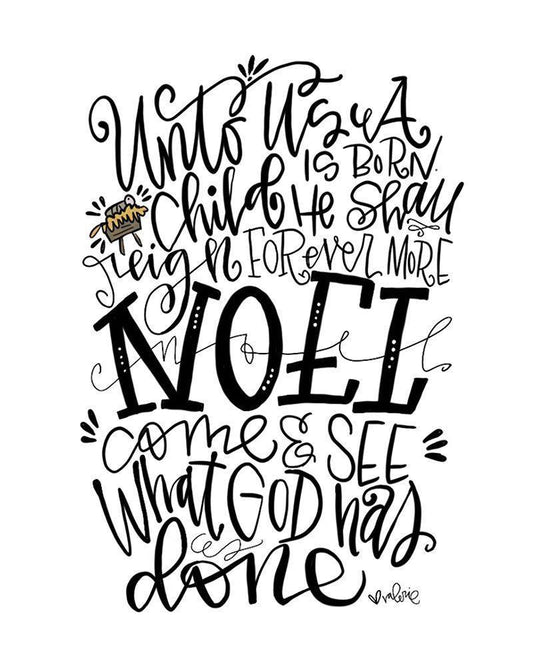 Unto Us A
Child IS BORN.
He Shall
reign FOReveR MoRE
NOEL
noel
come & SEE
What GOD has
done
valerie